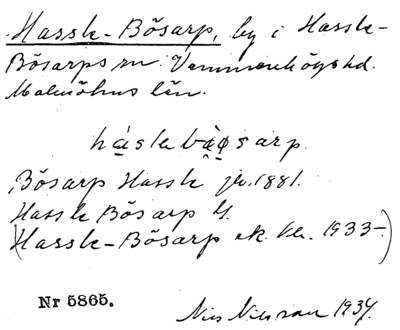 Hassle-Bösarp, by i Hassle-
Bösarps sn Vemmenhögs hd.
Malmöhus län.
håslebåøsarp.
Bösarp Hassle jr. 1881.
Hassle Bösarp
(Hassle-Bösarp ek. 1933-)
Nr 5865.
Nils Nilsson 1934.